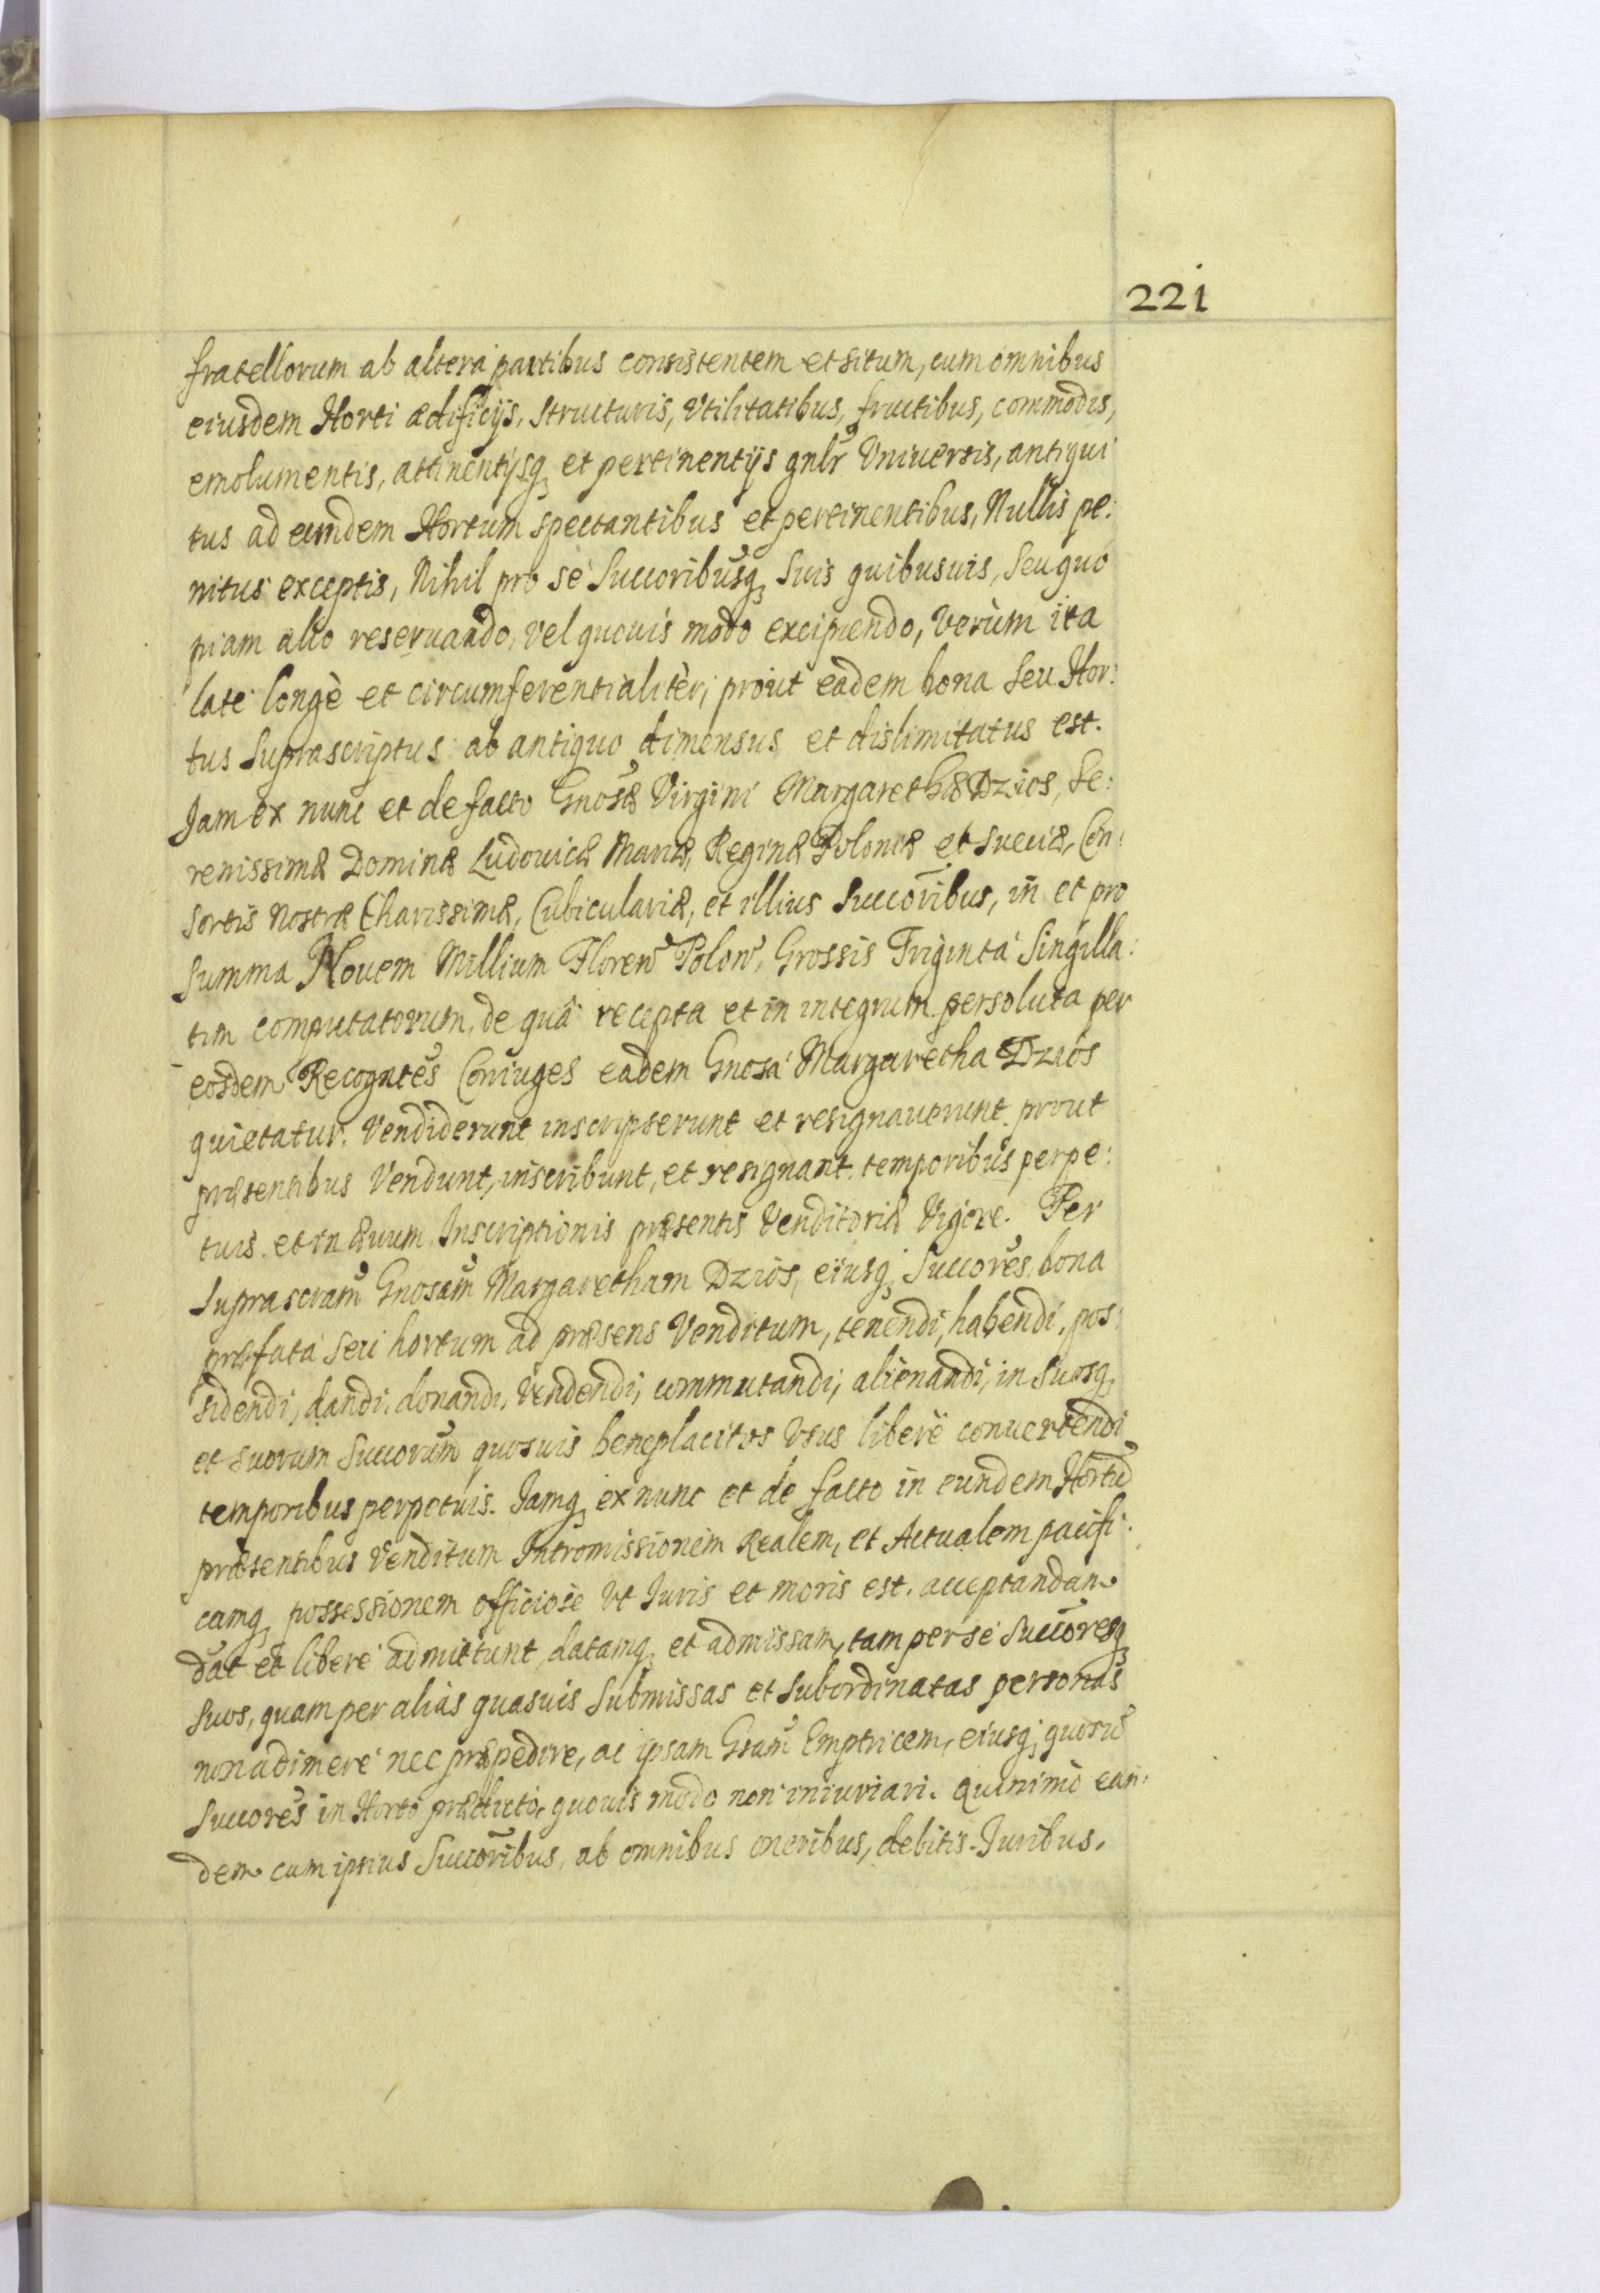 221
fratellorum ab altera partibus consistentem et situm, cum omnibus
eiusdem Horti ædificijs, structuris, Vtilitatibus, fructibus, commodis,
emolumentis, attinentijsq; et pertinentijs gnlr Vniuersis, antiqui
tus ad eumdem Hortum spectantibus et pertinentibus, Nullis pe:
nitus exceptis, Nihil pro se Succoribusq; Suis quibusuis, Seu quo
piam alio reseruando, vel quouis modo excipiendo, Verùm ita
late longè et circumferentialitèr, prout eadem bona Seu Hor:
tus Suprascriptus ab antiquo dimensus et dislimitatus est.
Jam ex nunc et de facto Gnosæ Virgini Margarethæ Dzios, Se:
renissimæ Dominæ Ludouicæ Mariæ, Reginæ Poloniæ et Sueciæ, Con:
sortis Nostræ Charissimæ, Cubiculariæ, et illius Succoribus, in et pro
Summa Nouem Millium Floren Polon, Grossis Triginta Singilla:
tim computatorum, de quâ recepta et in integrum persoluta per
eosdem Recogntes Coniuges eadem Gnosa Margaretha Dzios
quietatur. Vendiderunt inscripserunt et resignauerunt prout
præsentibus Vendunt, inscribunt, et resignant temporibus perpe:
tuis et in æuum Inscriptionis præsentis Venditoriæ Vigore. Per
Suprascram Gnosam Margaretham Dzios, eiusq; Succores bona
præfata seu hortum ad præsens Venditum, tenendi, habendi, pos:
sidendi, dandi, donandi, Vendendi, commutandi, alienandi, in Suosq;
et suorum Succorum quosuis beneplacitos Vsus liberè conuertendi
temporibus perpetuis. Jamq; ex nunc et de facto in eundem Hortu
præsentibus Venditum Intromissionem Realem, et Actualem pacifi:
camq; possessionem officiose Vt Iuris et moris est. acceptandam
dat et libere admittunt, datamq; et admissam, tam per se Succoresq;
Suos, quam per alias quasuis Submissas et Subordinatas personas
non adimere nec præpedire, ac ipsam Gsam Emptricem, eiusq; quosu
Succores in Horto prædicto, quouis modo non iniuriari. Quinimo ean:
dem cum ipsius Succoribus, ab omnibus oneribus, debitis. Iuribus.